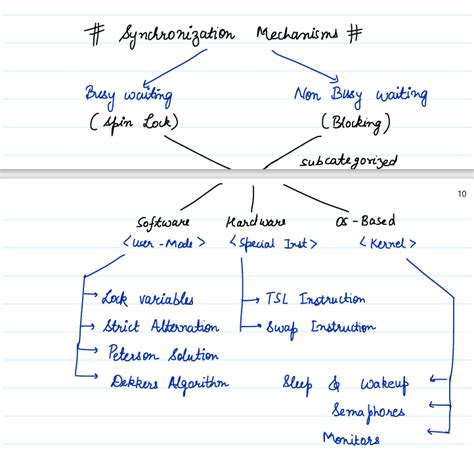 # Synchronization Mechanisms #
Busy waiting Non Busy waiting
(Spin Lock) (Blocking)
subcategorized
10
Software Hardware OS-Based
<user-Mode> <Special Inst> <Kernel>
Lock variables TSL Instruction
Strict Alternation Swap Instruction
Peterson Solution
Dekkers Algorithm Sleep & Wakeup
Semaphores
Monitors